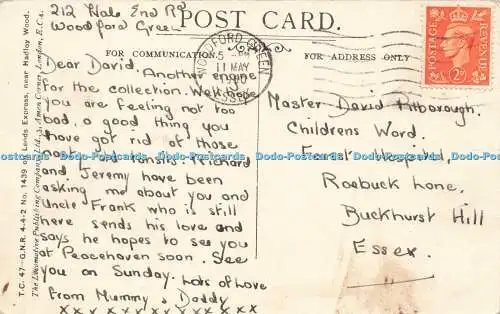 212 Hale End Rd
Woodford Green
POST CARD.
FOR COMMUNICATION
FOR ADDRESS ONLY
WOODFORD GREEN
5 - PM
11 MAY
ESSEX
POSTAGE
REVENUE
Dear David,
Another engine
for the collection. Well, hope
you are feeling not too
bad, a good thing you
have got rid of those
nasty old tonsils. Richard
and Jeremy have been
asking me about you and
Uncle Frank who is still
here sends his love and
says he hopes to see you
at Peacehaven soon. See
you on Sunday. Lots of Love
from Mummy & Daddy
x x x x x x x x x x x x
Master David
Childrens Word.
Forest Hospital,
Roebuck Lane,
Buckhurst Hill
Essex.
T.C. 47—G.N.R. 4-4-2 No. 1439, on Leeds Express, near Hadley Wood.
The Locomotive Publishing Company, Ltd., 3, Amen Corner, London, E.C.4.
Dodo-Postcards Dodo-Postcards Dodo-Postcards Dodo-Postcards Dodo-Postcards Dodo-Postcards